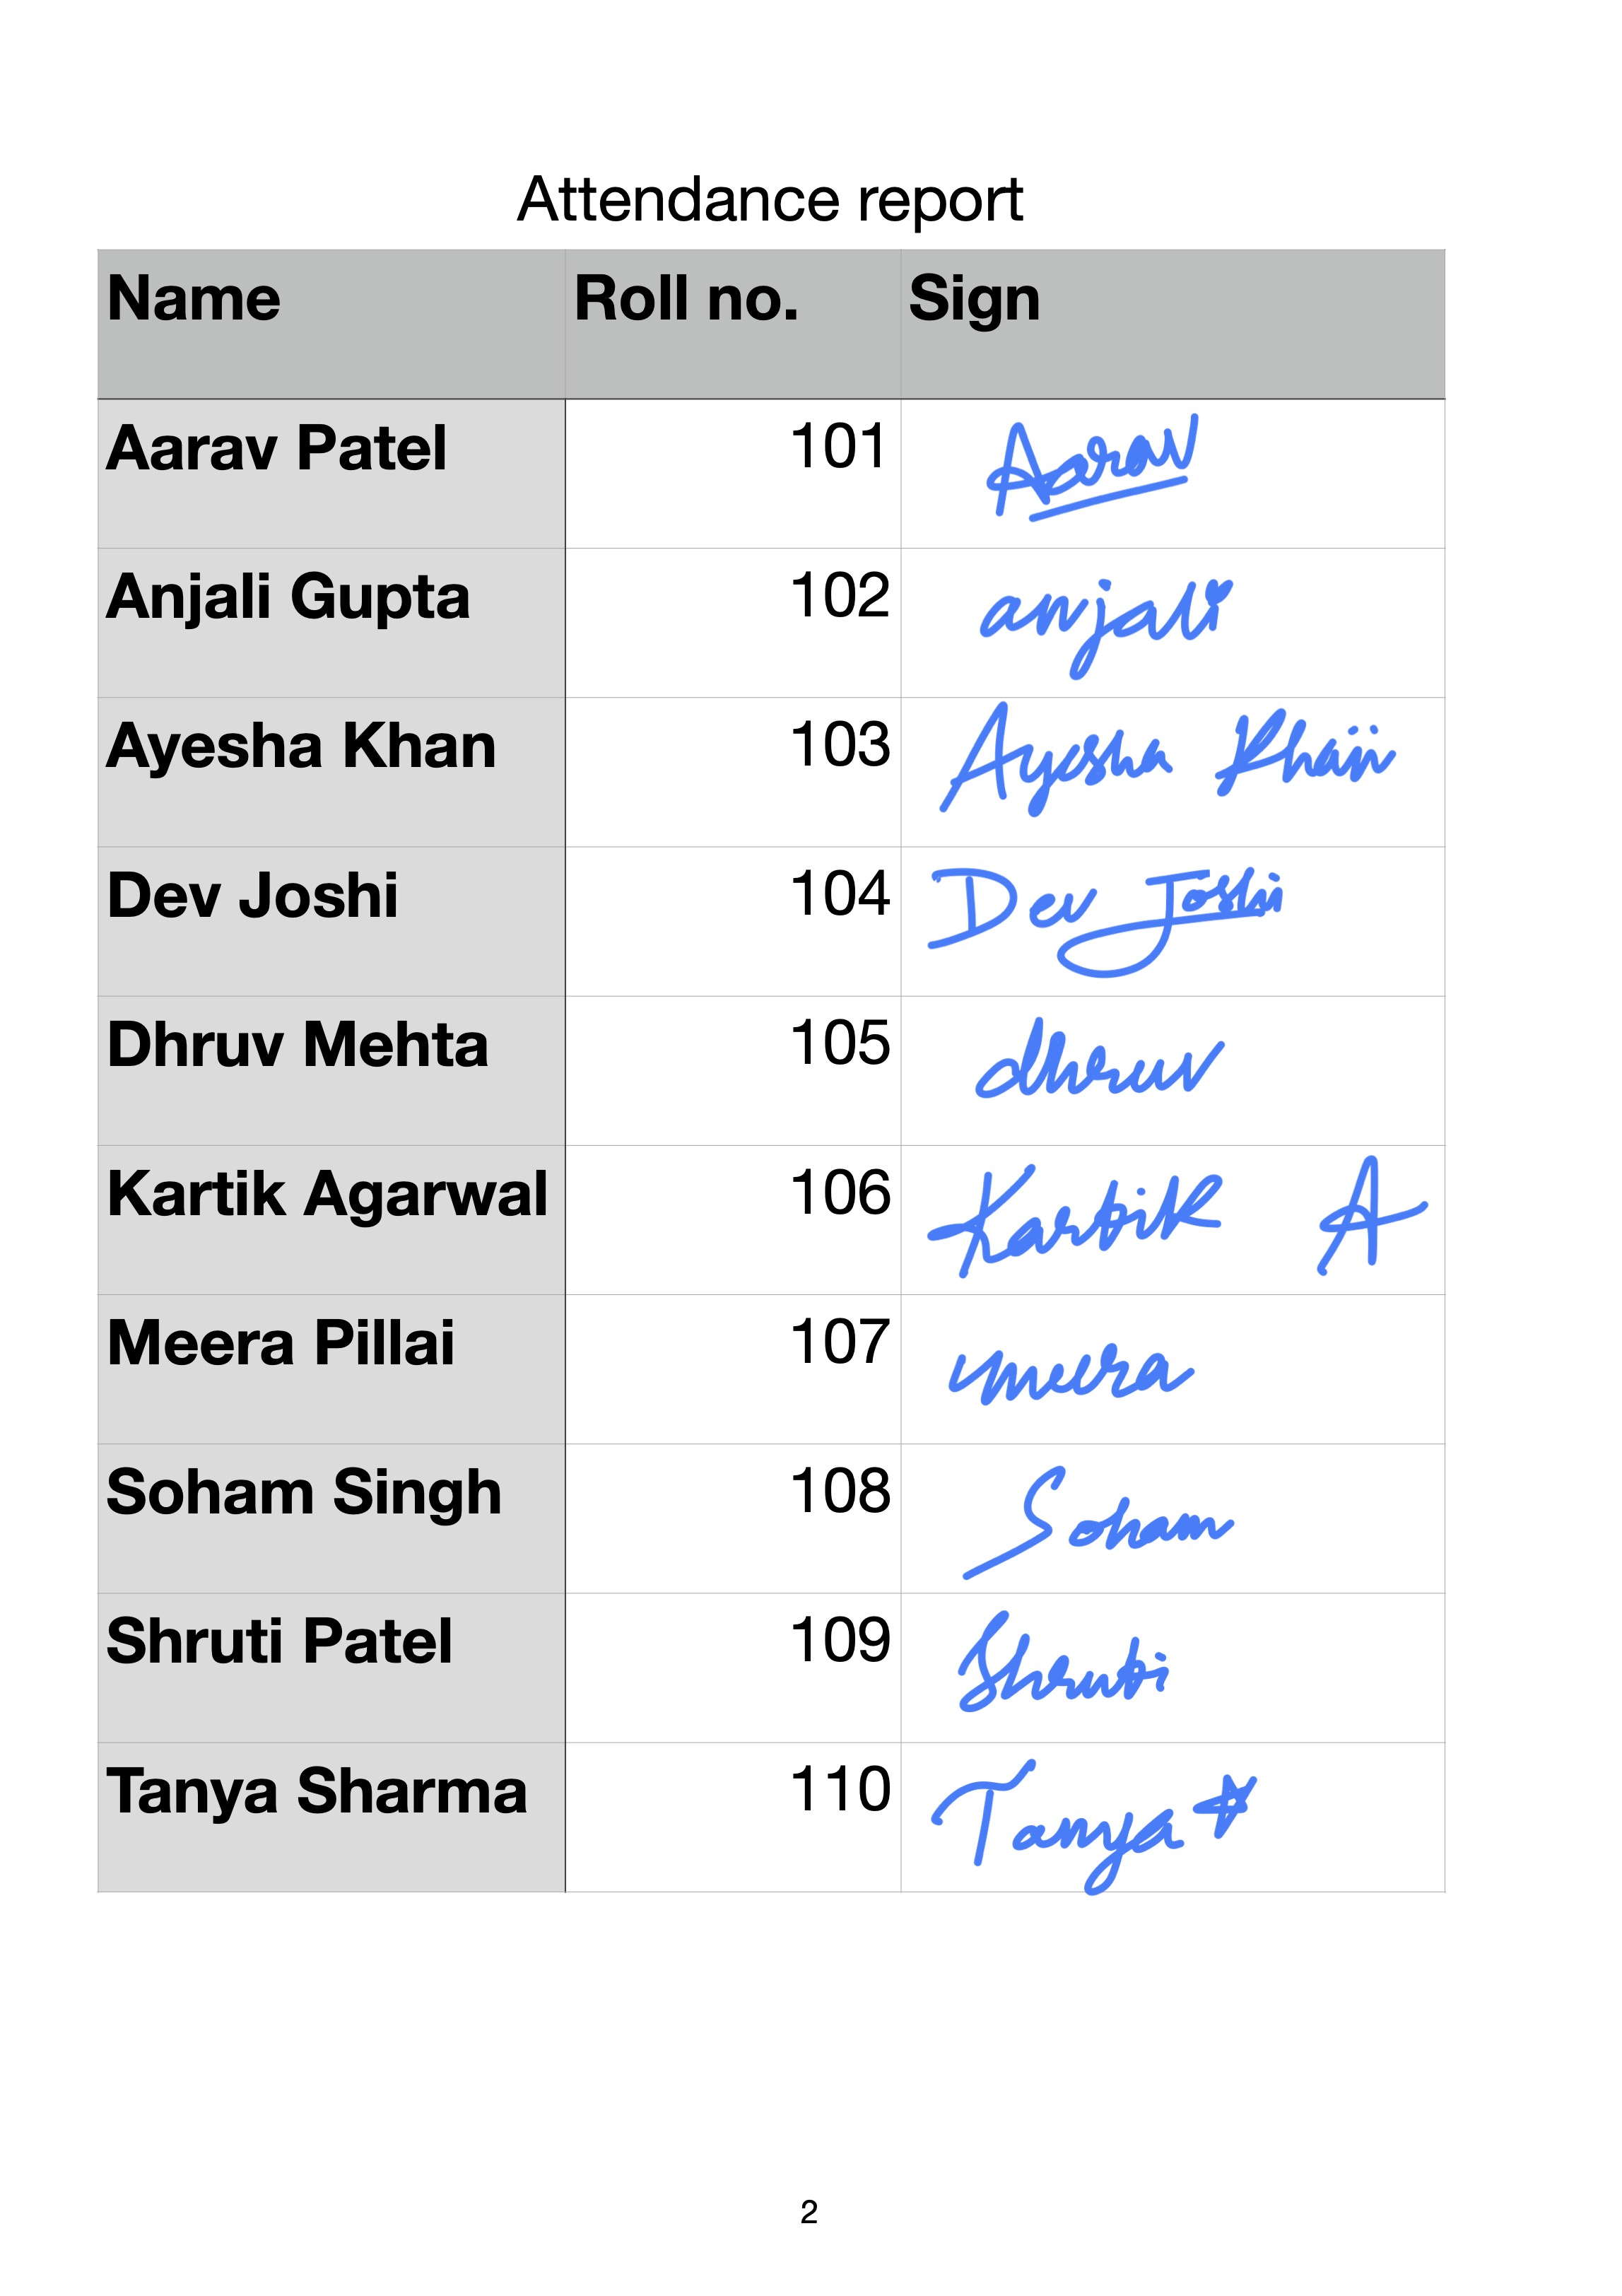 Attendance report
Name Roll no. Sign
Aarav Patel 101 Aarav
Anjali Gupta 102 anjali
Ayesha Khan 103 Ayesha
Dev Joshi 104 Dev Joshi
Dhruv Mehta 105 dhruv
Kartik Agarwal 106 Kartik A
Meera Pillai 107 meera
Soham Singh 108 Soham
Shruti Patel 109 Shruti
Tanya Sharma 110 Tanya
2